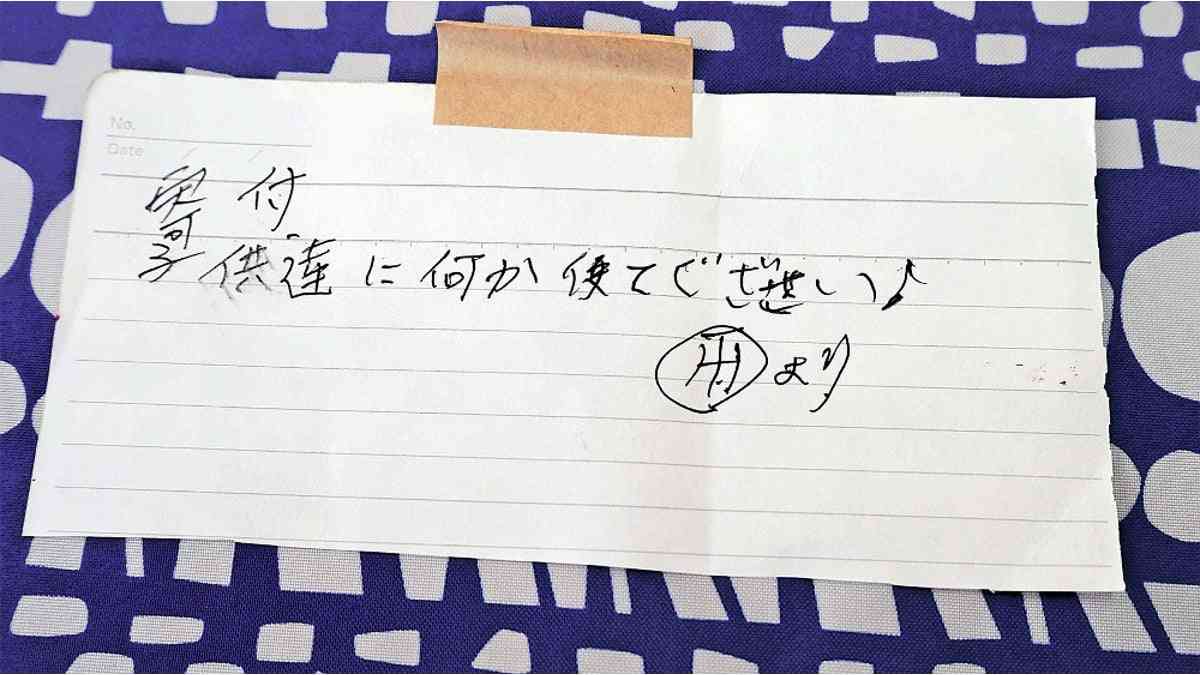 No.
Date
寄付
子供達に何か使てください♪
より